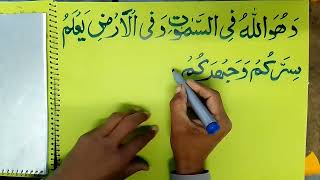 وَهُوَ اللهُ فِي السَّمٰوٰتِ وَفِي الْاَرْضِ يَعْلَمُ
سِرَّكُمْ وَجَهْرَكُمْ